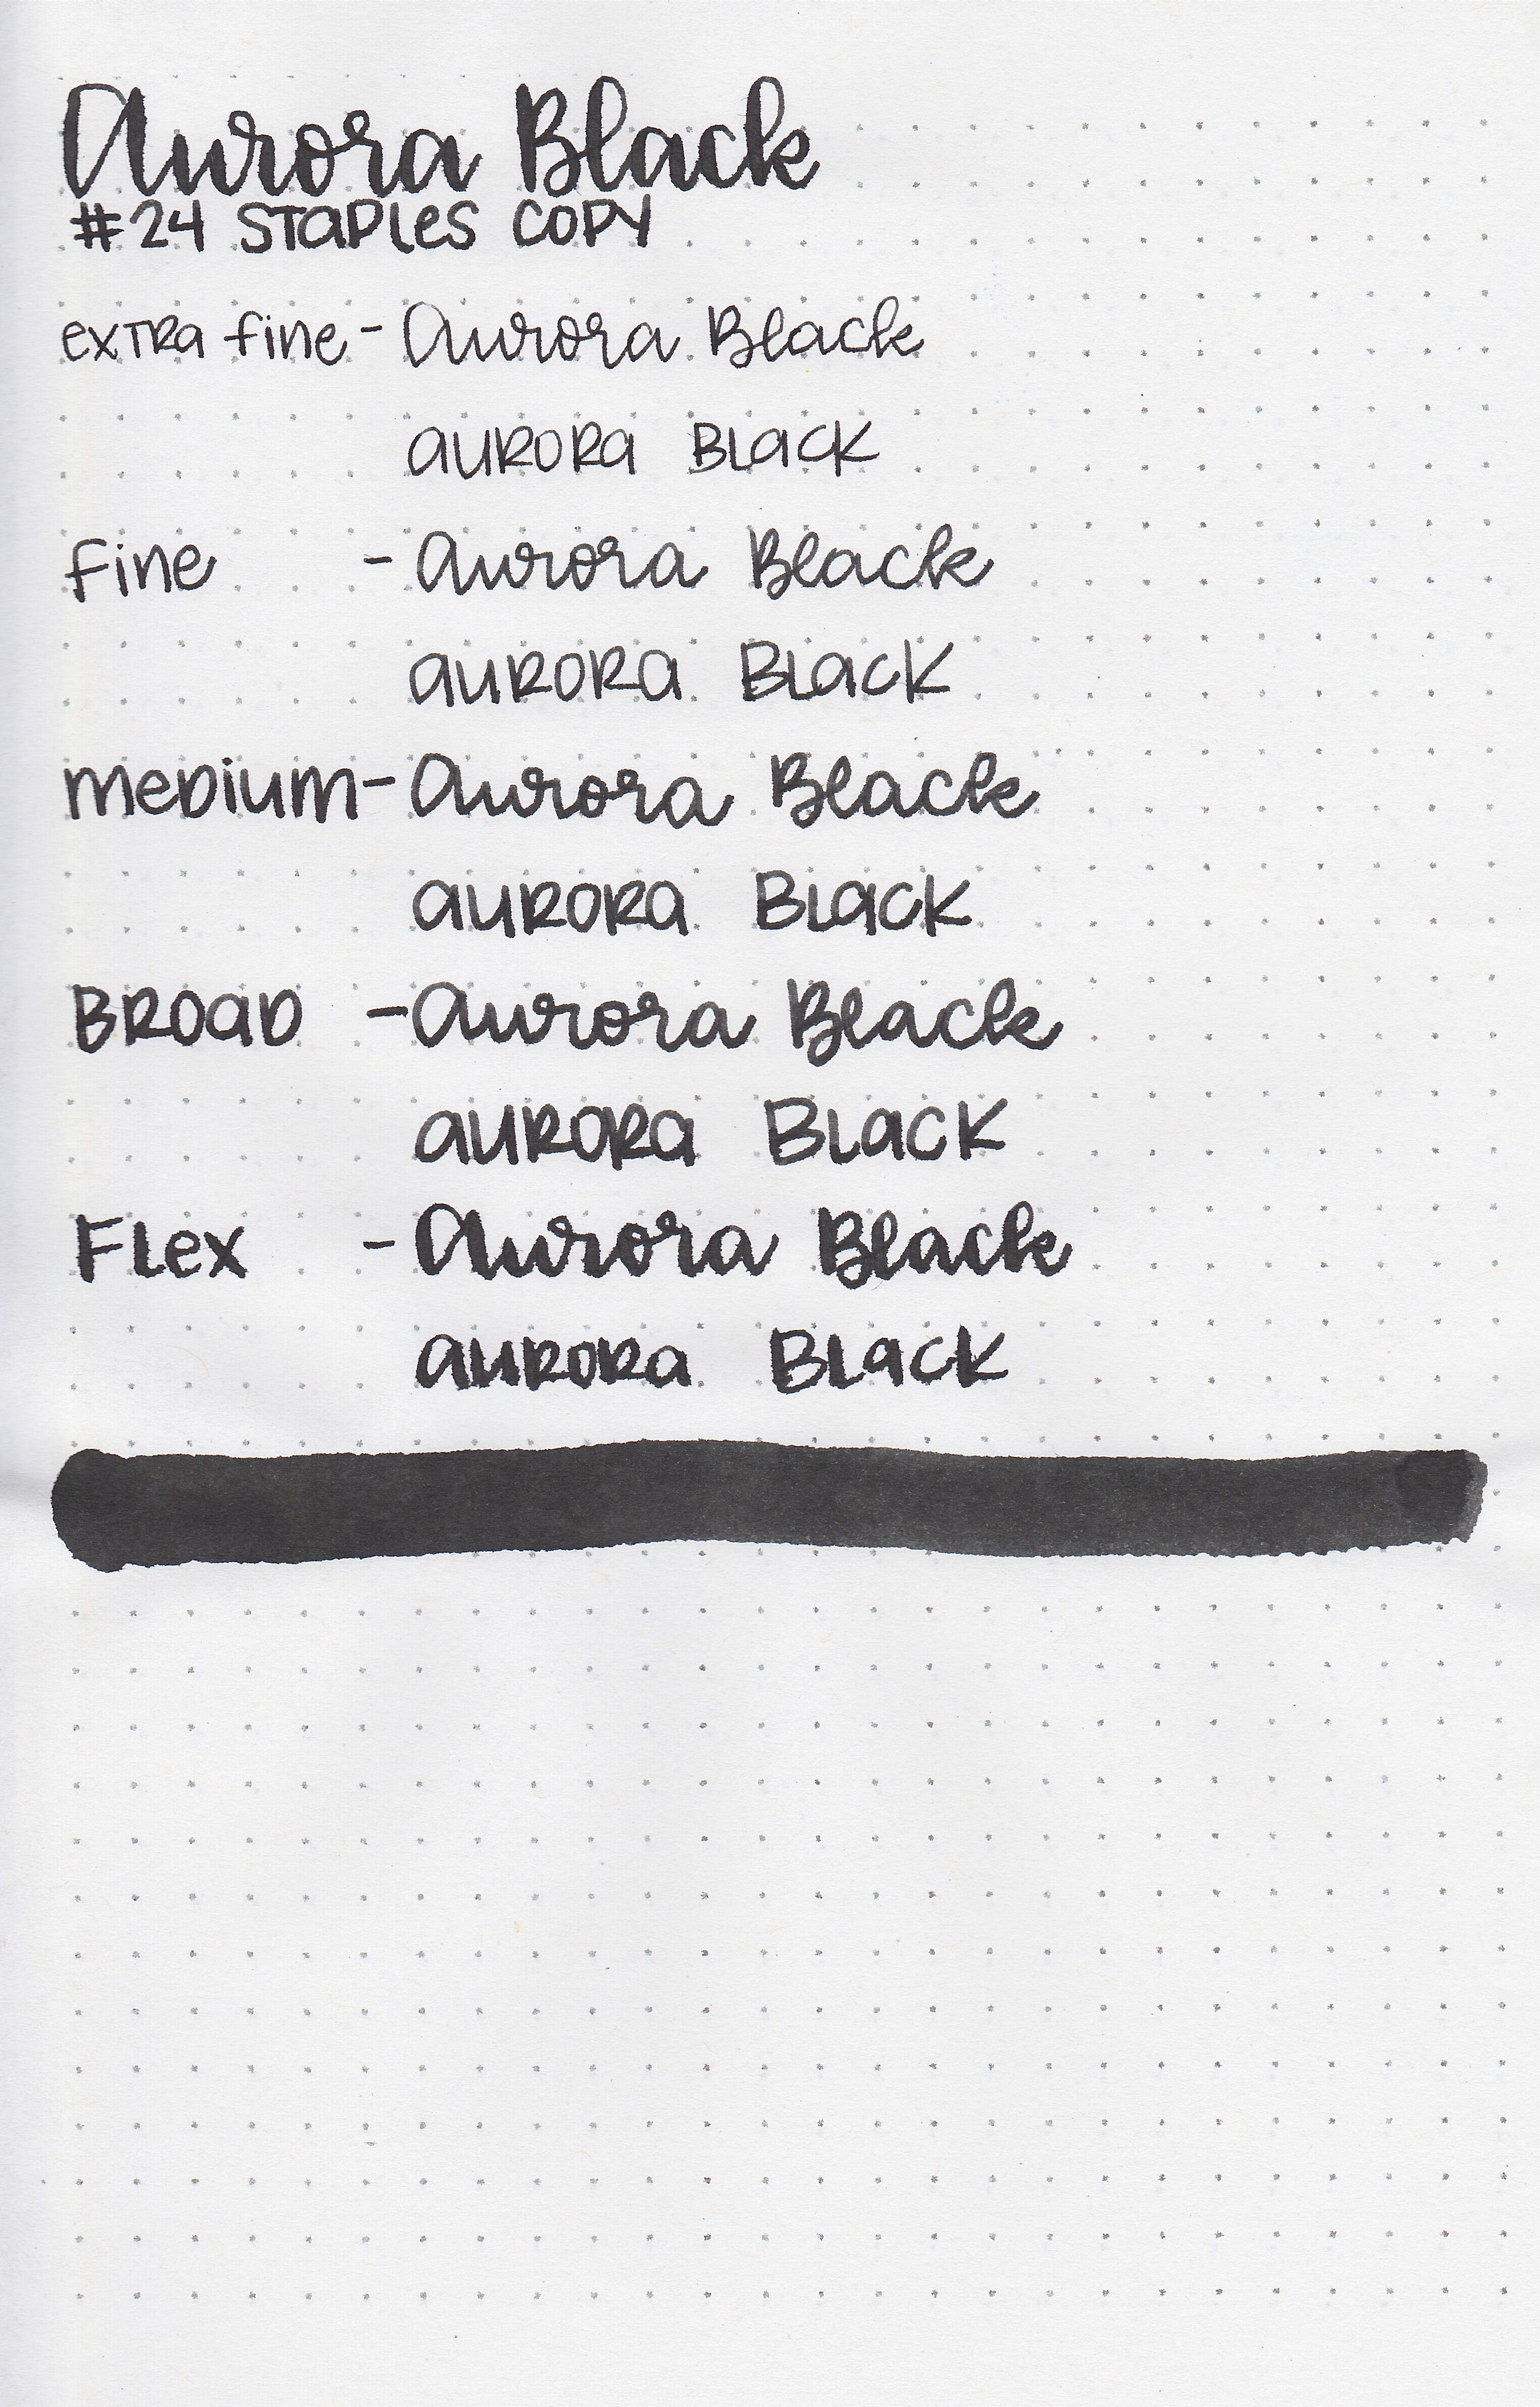 Aurora Black
#24 Staples Copy
extra fine - Aurora Black
aurora Black
fine - Aurora Black
aurora Black
medium - Aurora Black
aurora Black
Broad - Aurora Black
aurora Black
Flex - Aurora Black
aurora Black